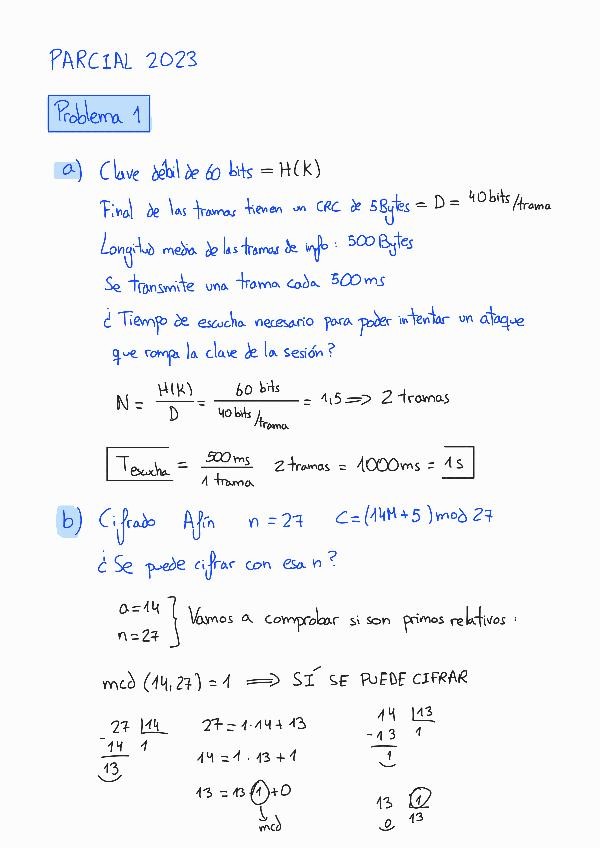 PARCIAL 2023
Problema 1
a) Clave débil de 60 bits = H(K)
Final de las tramas tienen un CRC de 5Bytes = D = 40 bits/trama
Longitud media de las tramas de info: 500 Bytes
Se transmite una trama cada 500ms
¿Tiempo de escucha necesario para poder intentar un ataque
que rompa la clave de la sesión?
N = H(K)/D = 60 bits/40 bits/trama = 1,5 => 2 tramas
Tescucha = 500ms/1 trama 2 tramas = 1000ms = 1s
b) Cifrado Afín n = 27 C=(14M+5)mod 27
¿Se puede cifrar con esa n?
a=14
n=27
} Vamos a comprobar si son primos relativos:
mcd (14,27) = 1 => SÍ SE PUEDE CIFRAR
27 |14
-14 1
13
27 = 1·14 + 13
14 = 1 · 13 + 1
13 = 13·1 + 0
mcd
14 |13
-13 1
1
13 |1
0 13